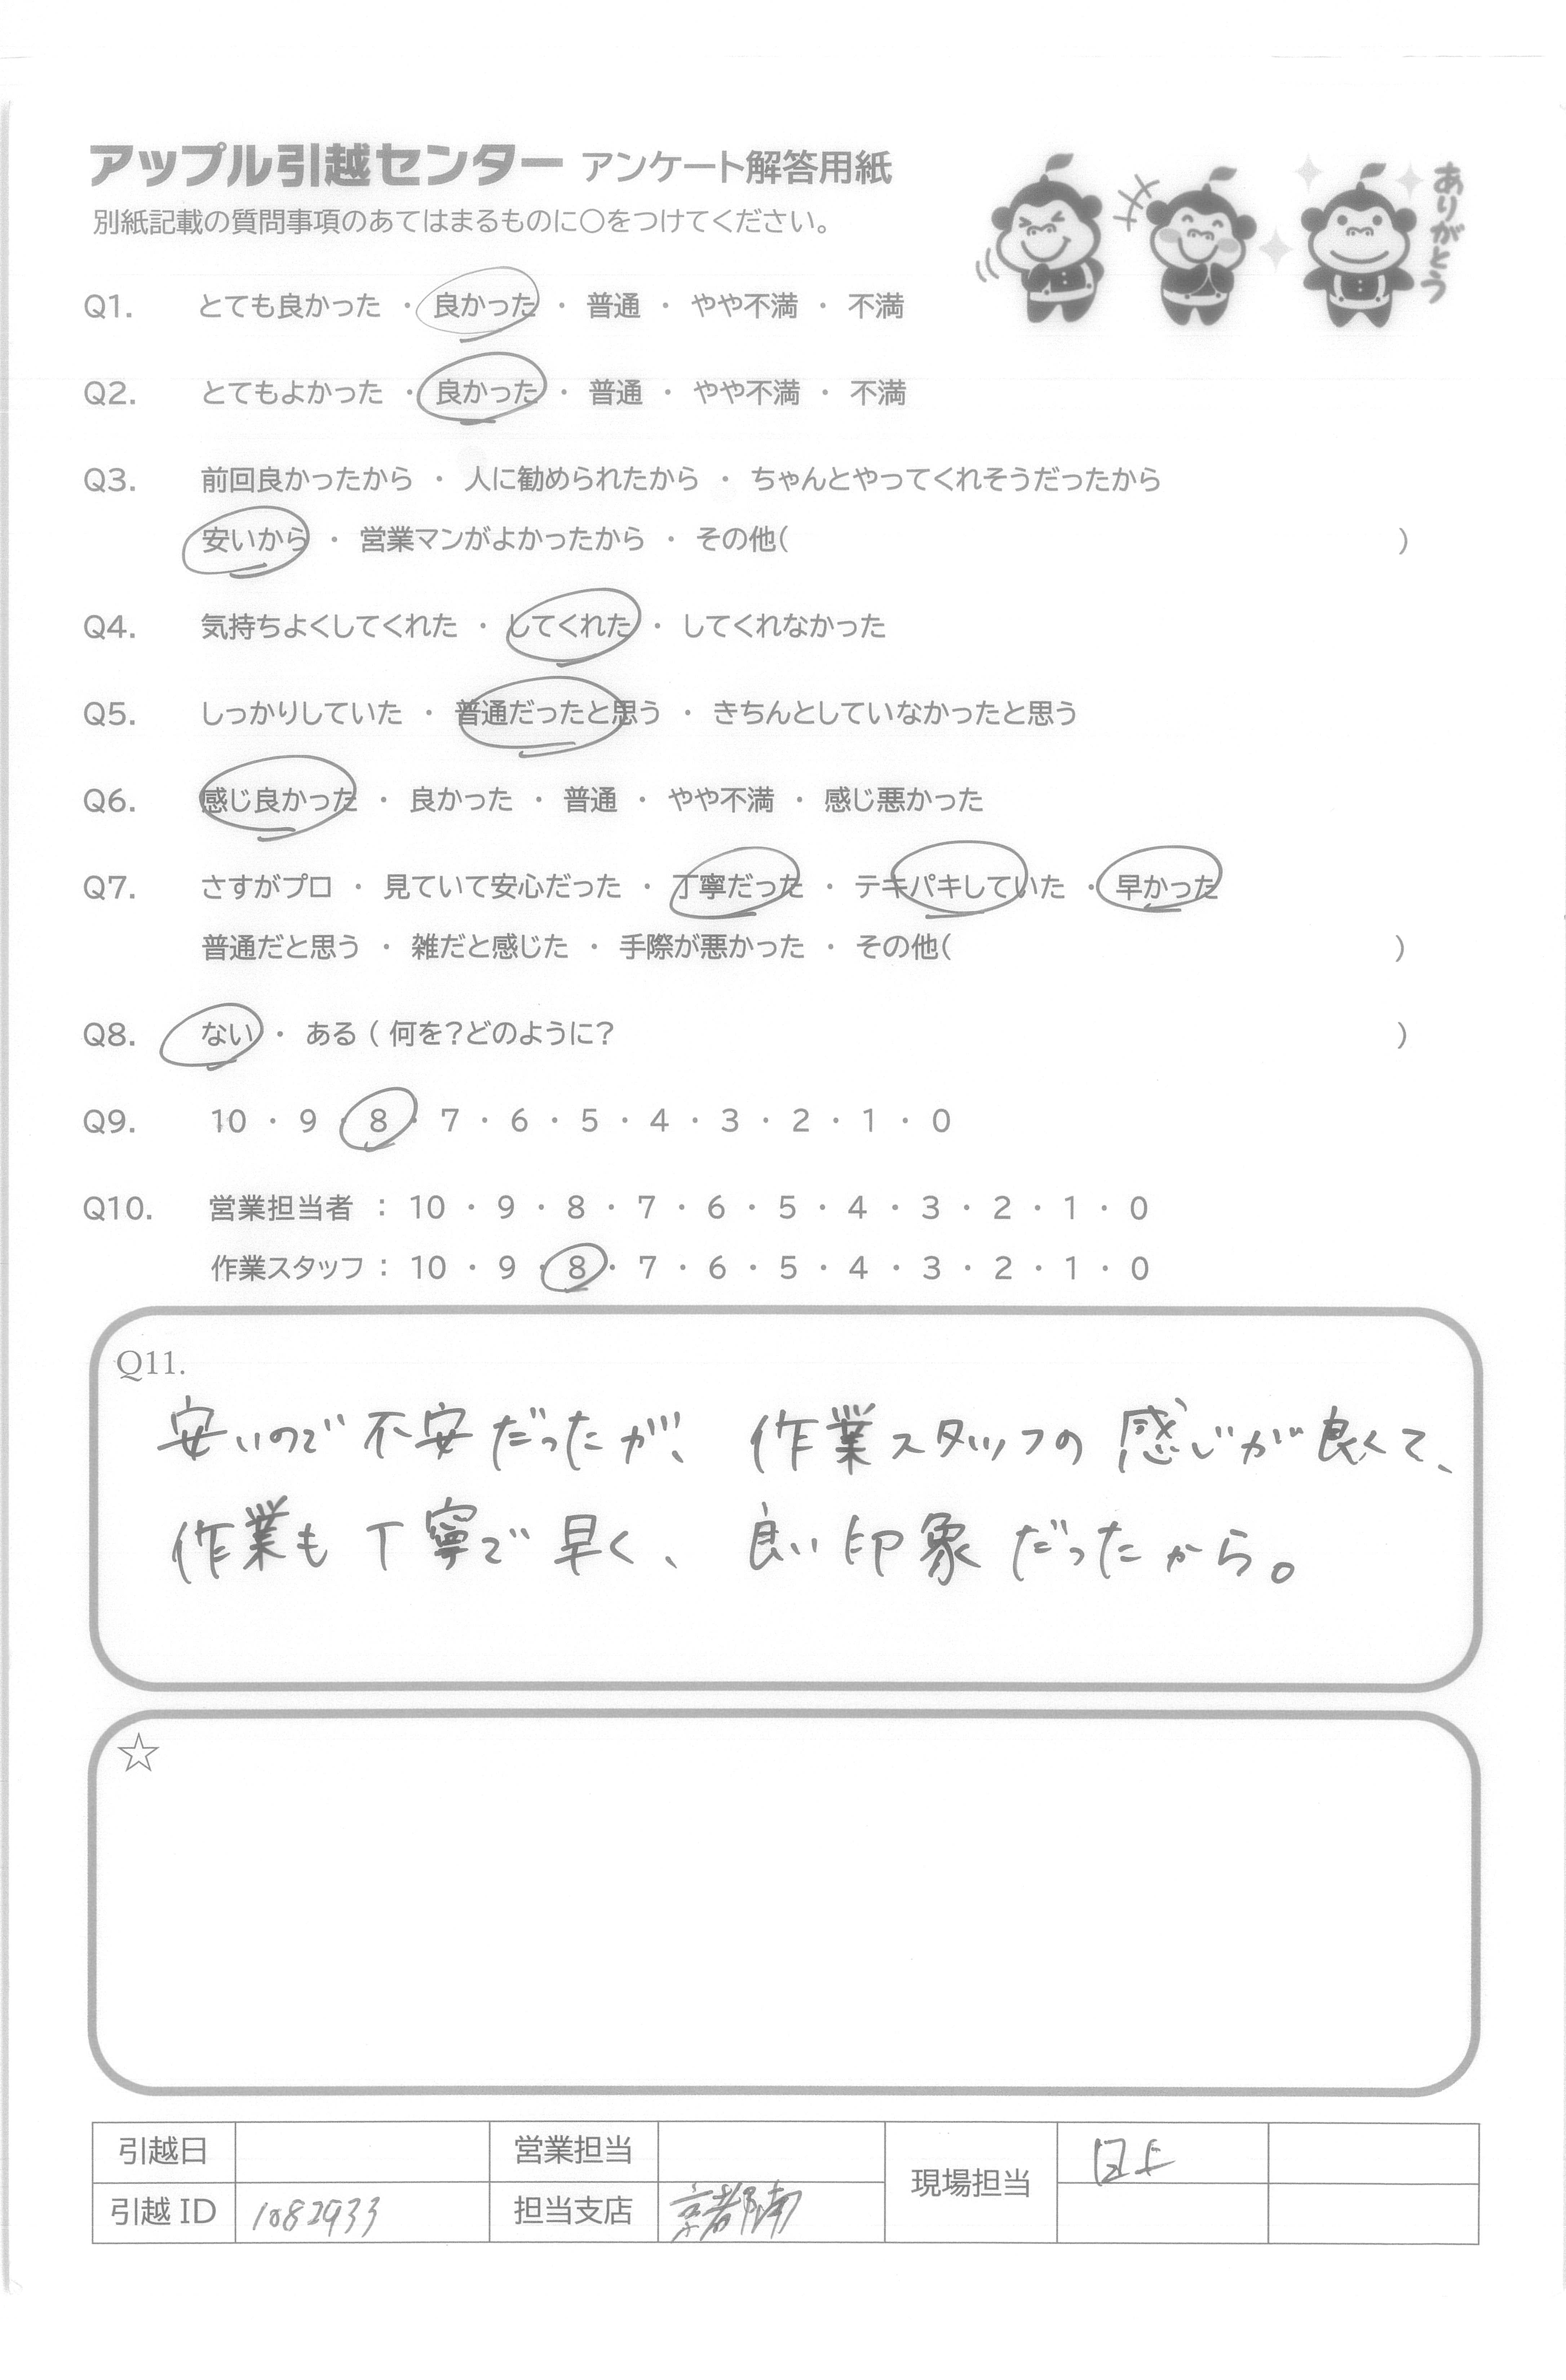 アップル引越センター アンケート解答用紙
別紙記載の質問事項のあてはまるものに○をつけてください。
ありがとう
Q1. とても良かった ・ 良かった ・ 普通 ・ やや不満 ・ 不満
Q2. とてもよかった ・ 良かった ・ 普通 ・ やや不満 ・ 不満
Q3. 前回良かったから ・ 人に勧められたから ・ ちゃんとやってくれそうだったから
安いから ・ 営業マンがよかったから ・ その他( )
Q4. 気持ちよくしてくれた ・ してくれた ・ してくれなかった
Q5. しっかりしていた ・ 普通だったと思う ・ きちんとしていなかったと思う
Q6. 感じ良かった ・ 良かった ・ 普通 ・ やや不満 ・ 感じ悪かった
Q7. さすがプロ ・ 見ていて安心だった ・ 丁寧だった ・ テキパキしていた ・ 早かった
普通だと思う ・ 雑だと感じた ・ 手際が悪かった ・ その他( )
Q8. ない ・ ある ( 何を?どのように? )
Q9. 10 ・ 9 ・ 8 ・ 7 ・ 6 ・ 5 ・ 4 ・ 3 ・ 2 ・ 1 ・ 0
Q10. 営業担当者 : 10 ・ 9 ・ 8 ・ 7 ・ 6 ・ 5 ・ 4 ・ 3 ・ 2 ・ 1 ・ 0
作業スタッフ : 10 ・ 9 ・ 8 ・ 7 ・ 6 ・ 5 ・ 4 ・ 3 ・ 2 ・ 1 ・ 0
Q11.
安いので不安だったが、作業スタッフの感じが良くて、
作業も丁寧で早く、良い印象だったから。
☆
引越日 営業担当 現場担当
引越 ID 1082933 担当支店 京都南